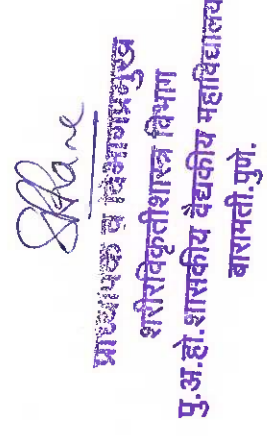 प्राध्यापक व विभागप्रमुख
शरीरविकृतीशास्त्र विभाग
पु.अ.हो.शासकीय वैद्यकीय महाविद्यालय
बारामती.पुणे.